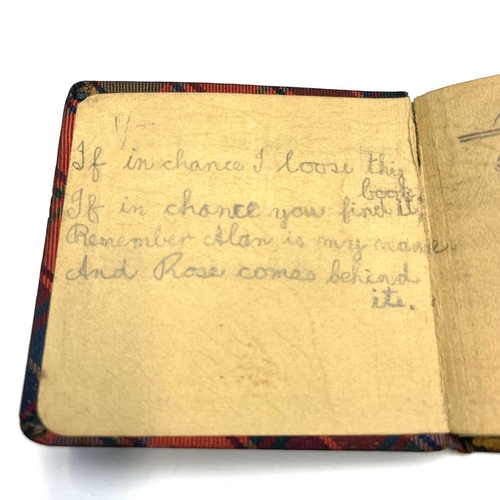 1/-
If in chance I loose this
book
If in chance you find it,
Remember Alan is my name.
And Rose comes behind
it.